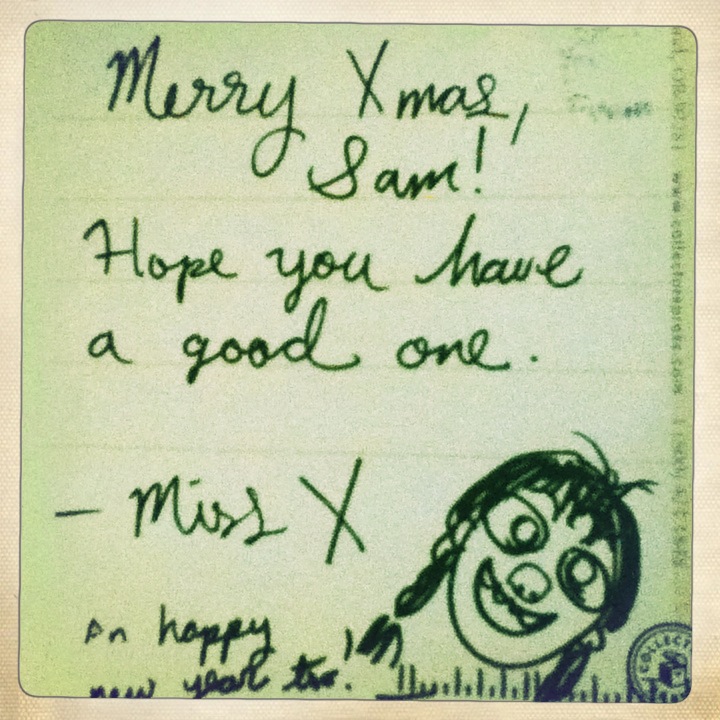 Merry Xmas,
Sam!
Hope you have
a good one.
— Miss X
An happy
new year too!
COLLECT